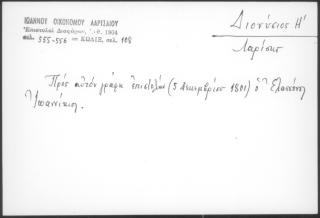 ΙΩΑΝΝΟΥ ΟΙΚΟΝΟΜΟΥ ΛΑΡΙΣΑΙΟΥ
"Επιστολαί Διαφόρων, 1964
σελ. 555-556 = ΚΩΔΙΞ, σελ. 108
Διονύσιος Η'
Λαρίσης
Πρός αὐτόν γράφει ἐπιστολήν (5 Δεκεμβρίου 1801) ὁ Ἐλασσῶνος
Ἰωαννίκιος.